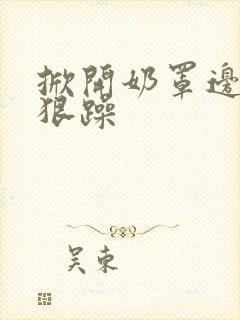 掀開奶罩邊
狠躁
吴束